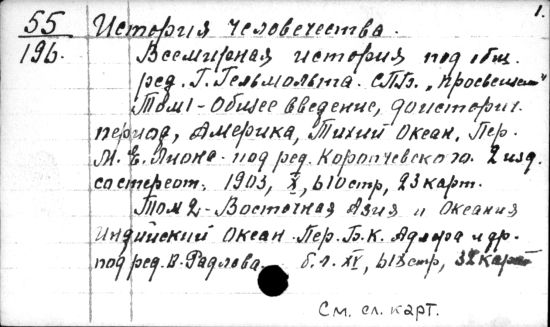 1.
55 История человечества.
196. Всемирная история под общ.
ред. Г. Гельмольта. СПБ. „Просвещен"
Том 1 - Общее введение, доисторич.
период, Америка, Тихий Океан. Пер.
М. Е. Лиона под ред. Коропчевского. 2 изд.
состереот., 1903, X, 610 стр, 23 карт.
Том 2 - Восточная Азия и Океания
Индийский Океан. Пер. Б. К. Адлера и др.
под ред. В. Радлова. б. г. XV, 613 стр, карт
См. сл. карт.